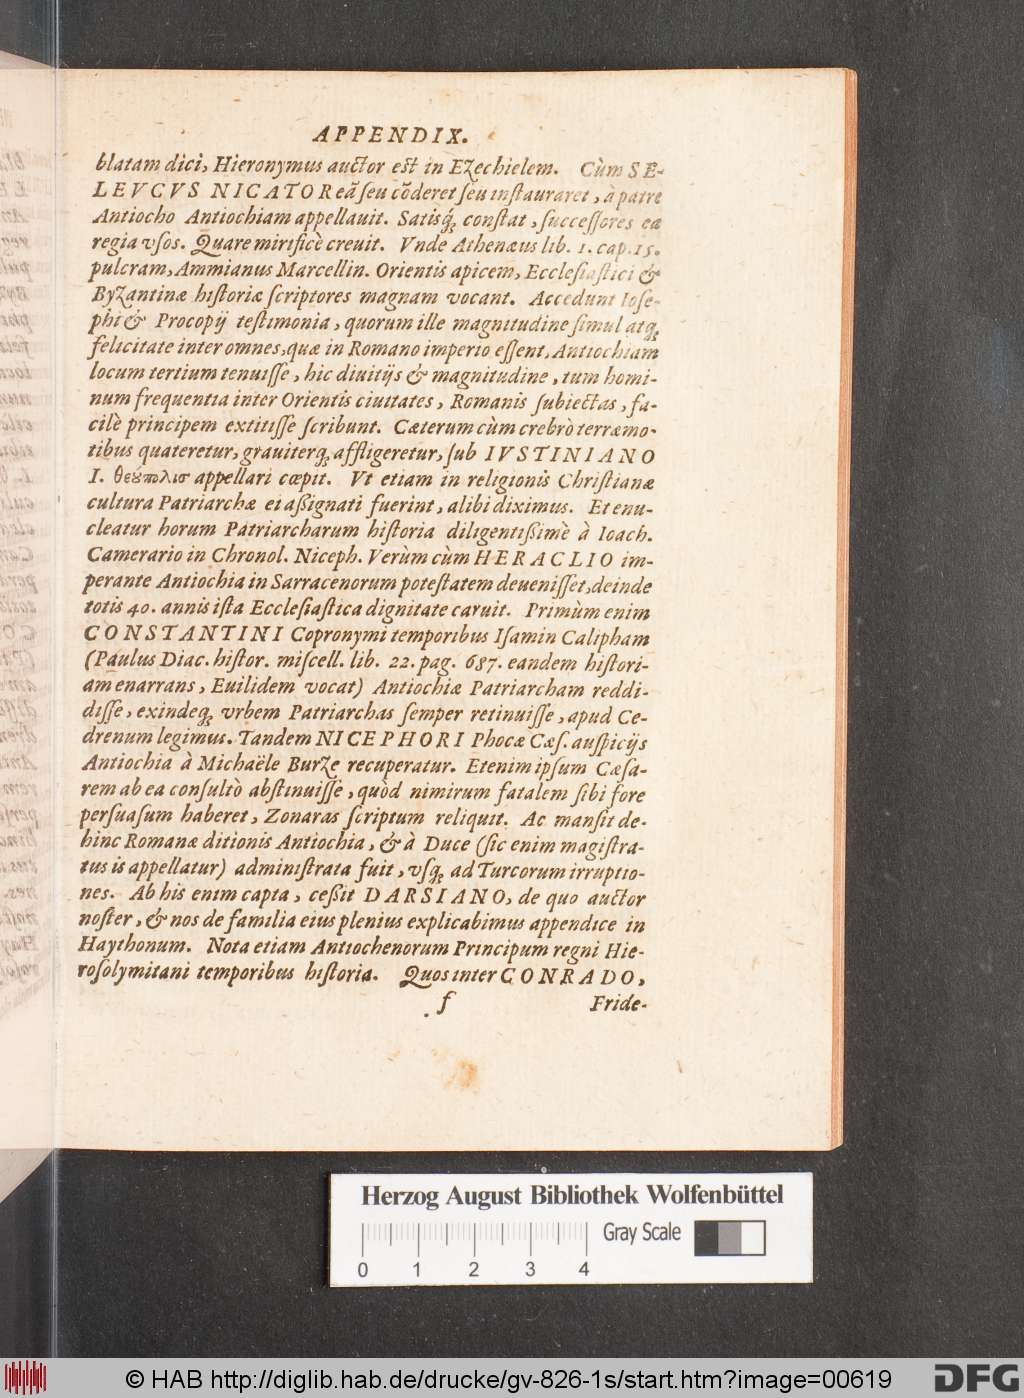 APPENDIX.
blatam dici, Hieronymus auctor est in Ezechielem. Cùm SE-
LEVCVS NICATOR eā seu cōderet seu instauraret, à patre
Antiocho Antiochiam appellauit. Satisq́; constat, successores ea
regia vsos. Quare mirificè creuit. Vnde Athenæus lib. 1. cap. 15.
pulcram, Ammianus Marcellin. Orientis apicem, Ecclesiastici &
Byzantinæ historiæ scriptores magnam vocant. Accedunt Iose-
phi & Procopij testimonia, quorum ille magnitudine simul atq;
felicitate inter omnes, quæ in Romano imperio essent, Antiochiam
locum tertium tenuisse, hic diuitijs & magnitudine, tum homi-
num frequentia inter Orientis ciuitates, Romanis subiectas, fa-
cilè principem extitisse scribunt. Cæterum cùm crebrò terræmo-
tibus quateretur, grauiterq; affligeretur, sub IVSTINIANO
I. θεȣ́πολισ appellari cœpit. Vt etiam in religionis Christianæ
cultura Patriarchæ ei assignati fuerint, alibi diximus. Et enu-
cleatur horum Patriarcharum historia diligentissimè à Ioach.
Camerario in Chronol. Niceph. Verùm cùm HERACLIO im-
perante Antiochia in Sarracenorum potestatem deuenisset, deinde
totis 40. annis ista Ecclesiastica dignitate caruit. Primùm enim
CONSTANTINI Copronymi temporibus Isamin Calipham
(Paulus Diac. histor. miscell. lib. 22. pag. 687. eandem histori-
am enarrans, Euilidem vocat) Antiochiæ Patriarcham reddi-
disse, exindeq; vrbem Patriarchas semper retinuisse, apud Ce-
drenum legimus. Tandem NICEPHORI Phocæ Cæs. auspicijs
Antiochia à Michaële Burze recuperatur. Etenim ipsum Cæsa-
rem ab ea consultò abstinuisse, quòd nimirum fatalem sibi fore
persuasum haberet, Zonaras scriptum reliquit. Ac mansit de-
hinc Romanæ ditionis Antiochia, & à Duce (sic enim magistra-
tus is appellatur) administrata fuit, vsq; ad Turcorum irruptio-
nes. Ab his enim capta, cessit DARSIANO, de quo auctor
noster, & nos de familia eius plenius explicabimus appendice in
Haythonum. Nota etiam Antiochenorum Principum regni Hie-
rosolymitani temporibus historia. Quos inter CONRADO,
f Fride-
Herzog August Bibliothek Wolfenbüttel
Gray Scale
0 1 2 3 4
© HAB http://diglib.hab.de/drucke/gv-826-1s/start.htm?image=00619
DFG